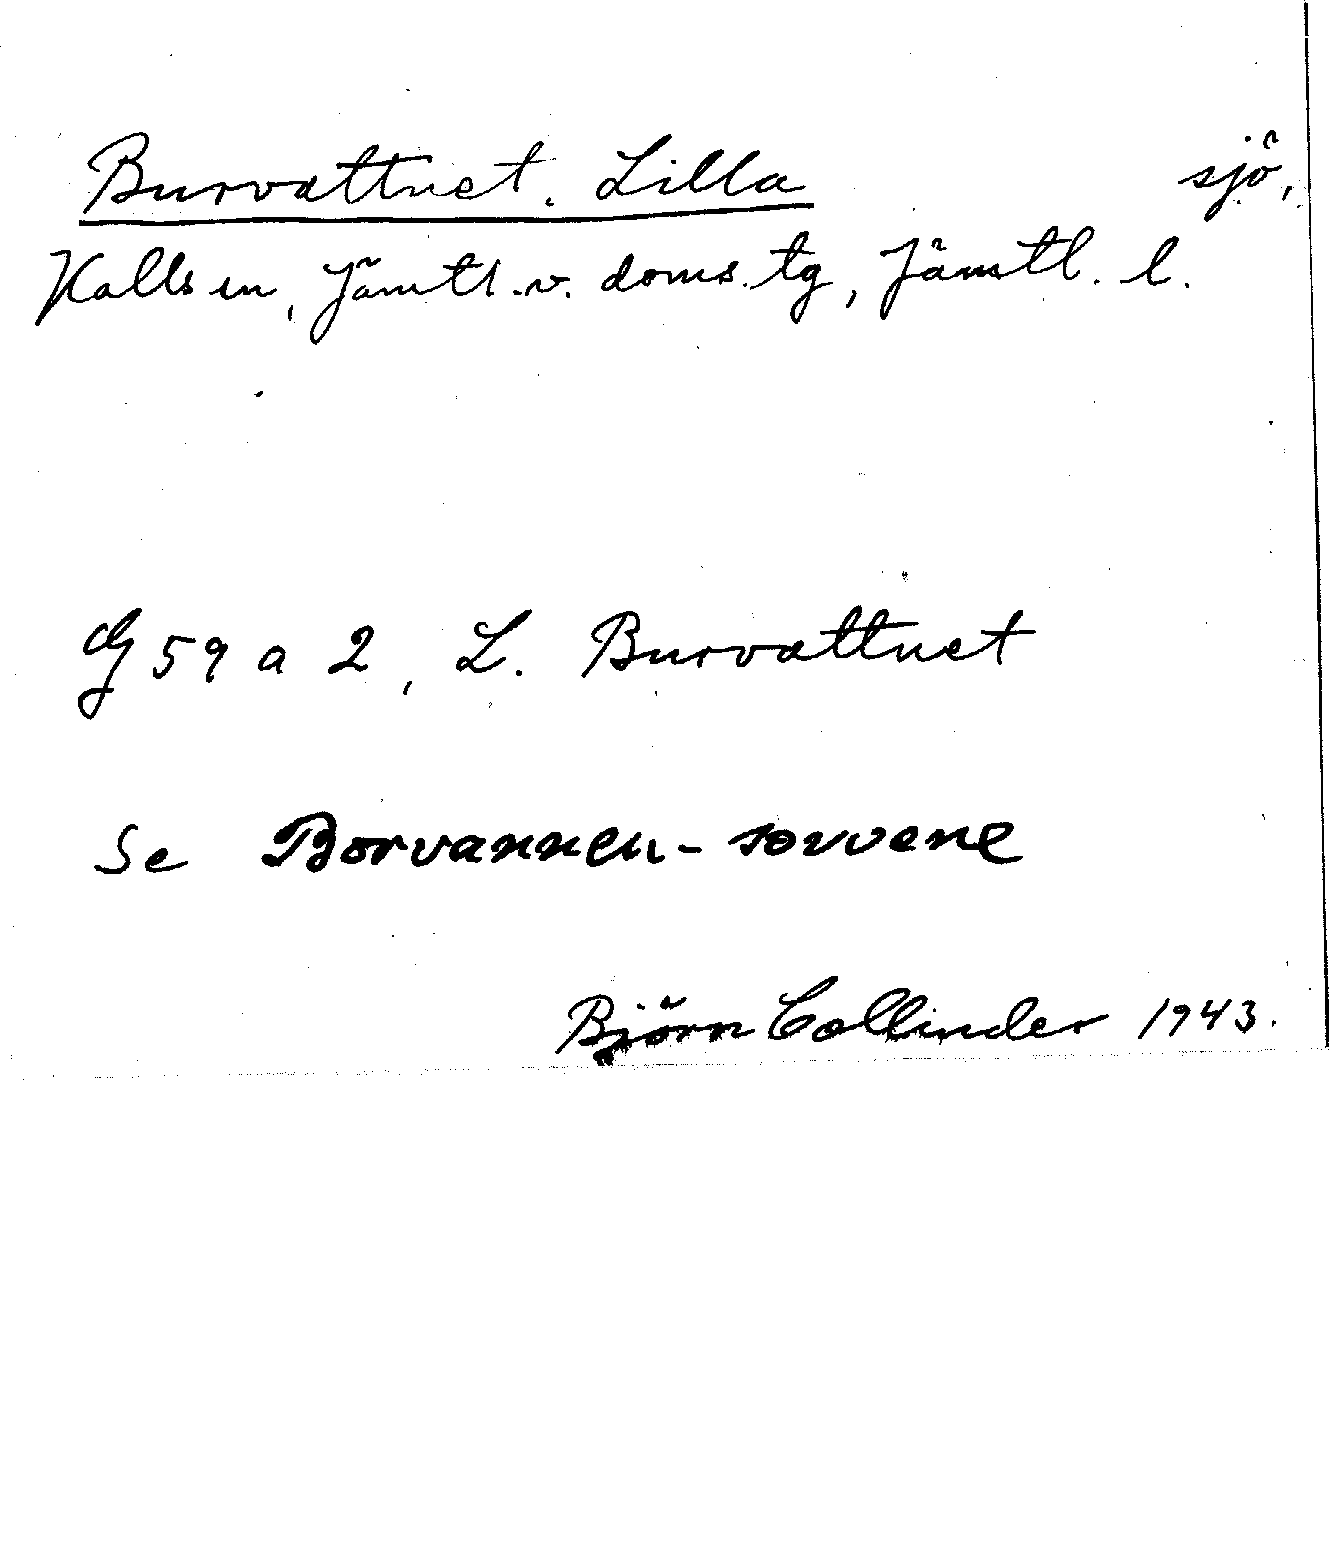 Burvattnet, Lilla sjö,
Kalls sn, Jämtl. v. doms. tg, Jämtl. l.
G 59 a 2, L. Burvattnet
Se Borvannen-sovvene
Björn Collinder 1943.